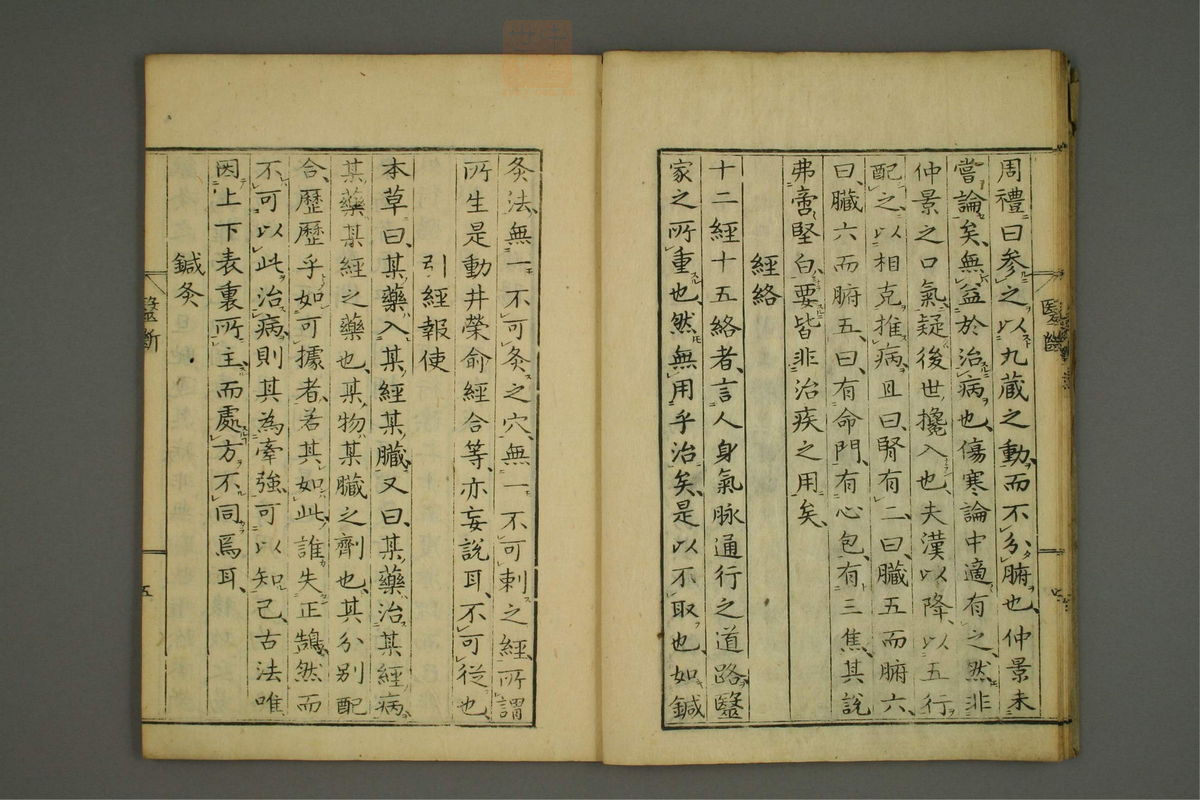 周禮曰參之以九藏之動而不分腑也仲景未
嘗論矣無益於治病也傷寒論中適有之然非
仲景之口氣疑後世攙入也夫漢以降以五行
配之以相克推病且曰腎有二曰臟五而腑六
曰臟六而腑五曰有命門有心包有三焦其說
弗啻堅白要皆非治疾之用矣
經絡
十二經十五絡者言人身氣脉通行之道路醫
家之所重也然無用乎治矣是以不取也如鍼
灸法無一不可灸之穴無一不可刺之經所謂
所生是動井榮俞經合等亦妄說耳不可從也
引經報使
本草曰某藥入某經某臟又曰某藥治某經病
某藥某經之藥也某物某臟之劑也其分別配
合歷歷乎如可據者若其如此誰失正鵠然而
不可以此治病則其為牽強可以知已古法唯
因上下表裏所主而處方不同焉耳
鍼灸
醫斷
五